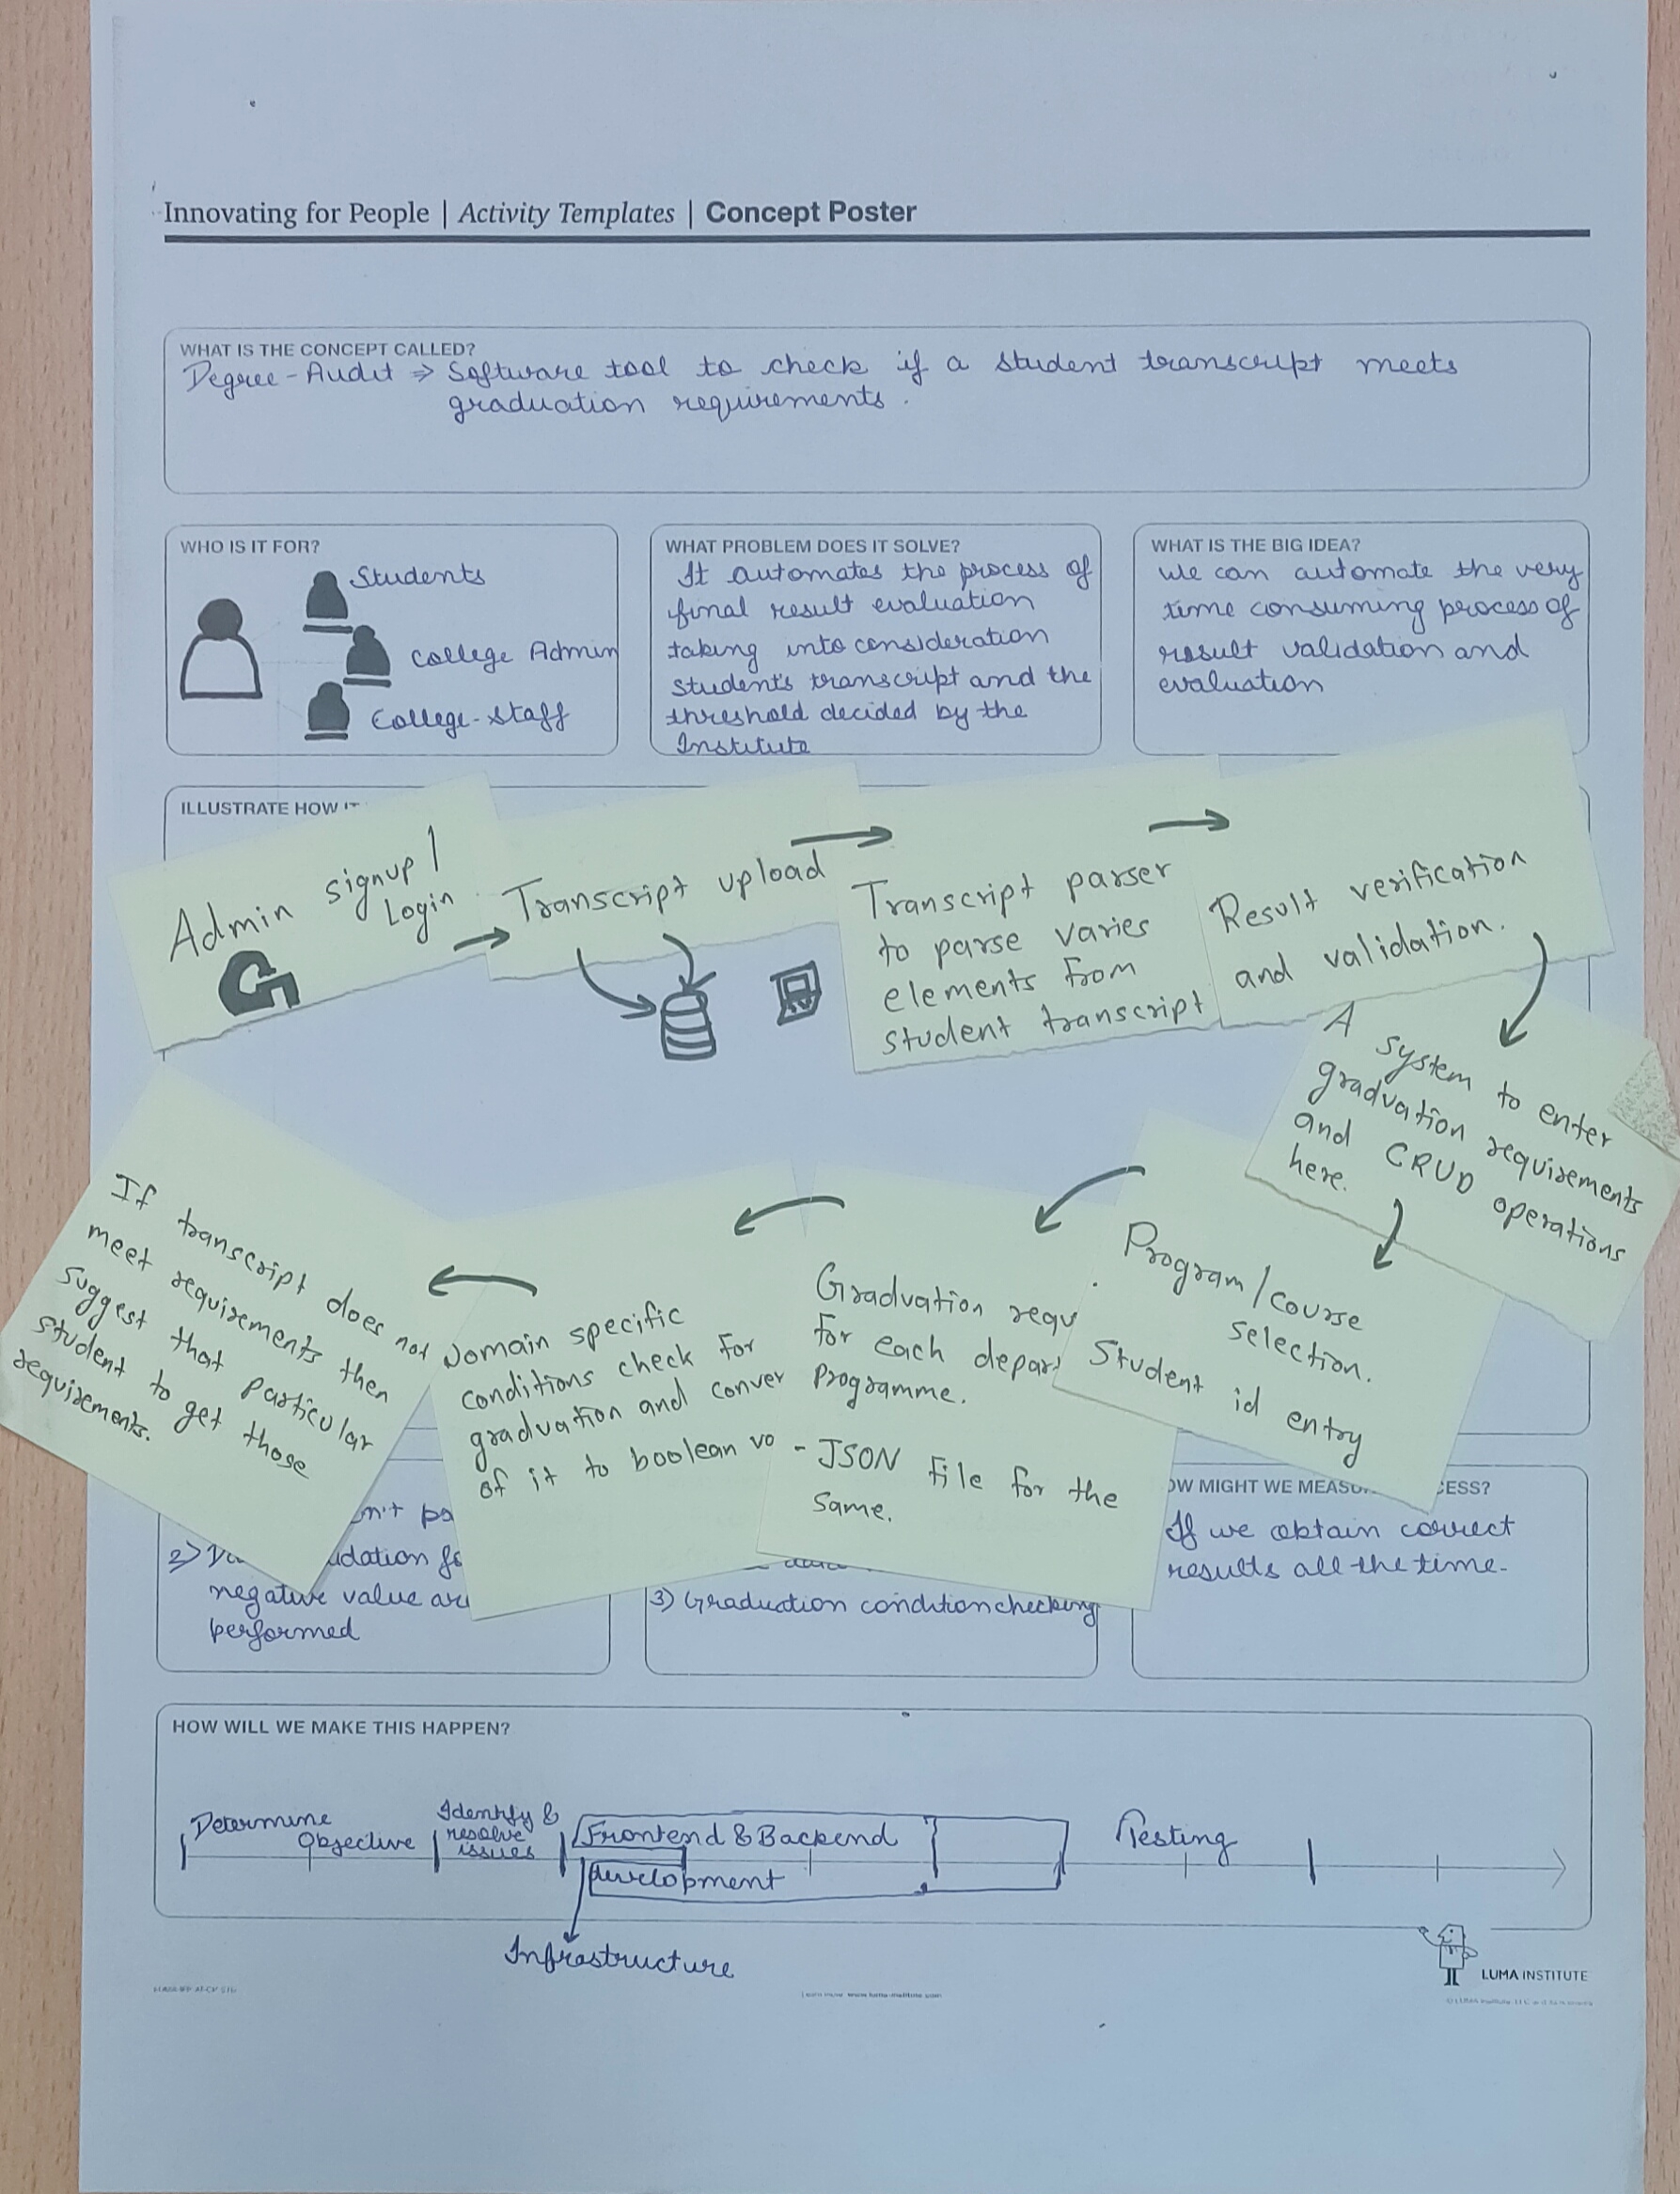 Innovating for People | Activity Templates | Concept Poster
WHAT IS THE CONCEPT CALLED?
Degree-Audit ⇒ Software tool to check if a student transcript meets
graduation requirements.
WHO IS IT FOR?
Students
College Admin
College-Staff
WHAT PROBLEM DOES IT SOLVE?
It automates the process of
final result evaluation
taking into consideration
student's transcript and the
threshold decided by the
Institute
WHAT IS THE BIG IDEA?
We can automate the very
time consuming process of
result validation and
evaluation
ILLUSTRATE HOW IT
Admin signup /
Login
G
Transcript upload
Transcript parser
to parse varies
elements from
student transcript
Result verification
and validation.
A system to enter
graduation requirements
and CRUD operations
here.
Program/course
selection.
Student id entry
Graduation requ
for each depar
Programme.
- JSON file for the
same.
Domain specific
conditions check for
graduation and conver
of it to boolean va
If transcript does not
meet requirements then
suggest that particular
student to get those
requirements.
n't pa
2) udation fo
negative value are
performed
3) Graduation condition checking
OW MIGHT WE MEASU CESS?
If we obtain correct
results all the time.
HOW WILL WE MAKE THIS HAPPEN?
Determine
Objective
Identify &
resolve
issues
Frontend & Backend
development
Testing
Infrastructure
LUMA INSTITUTE